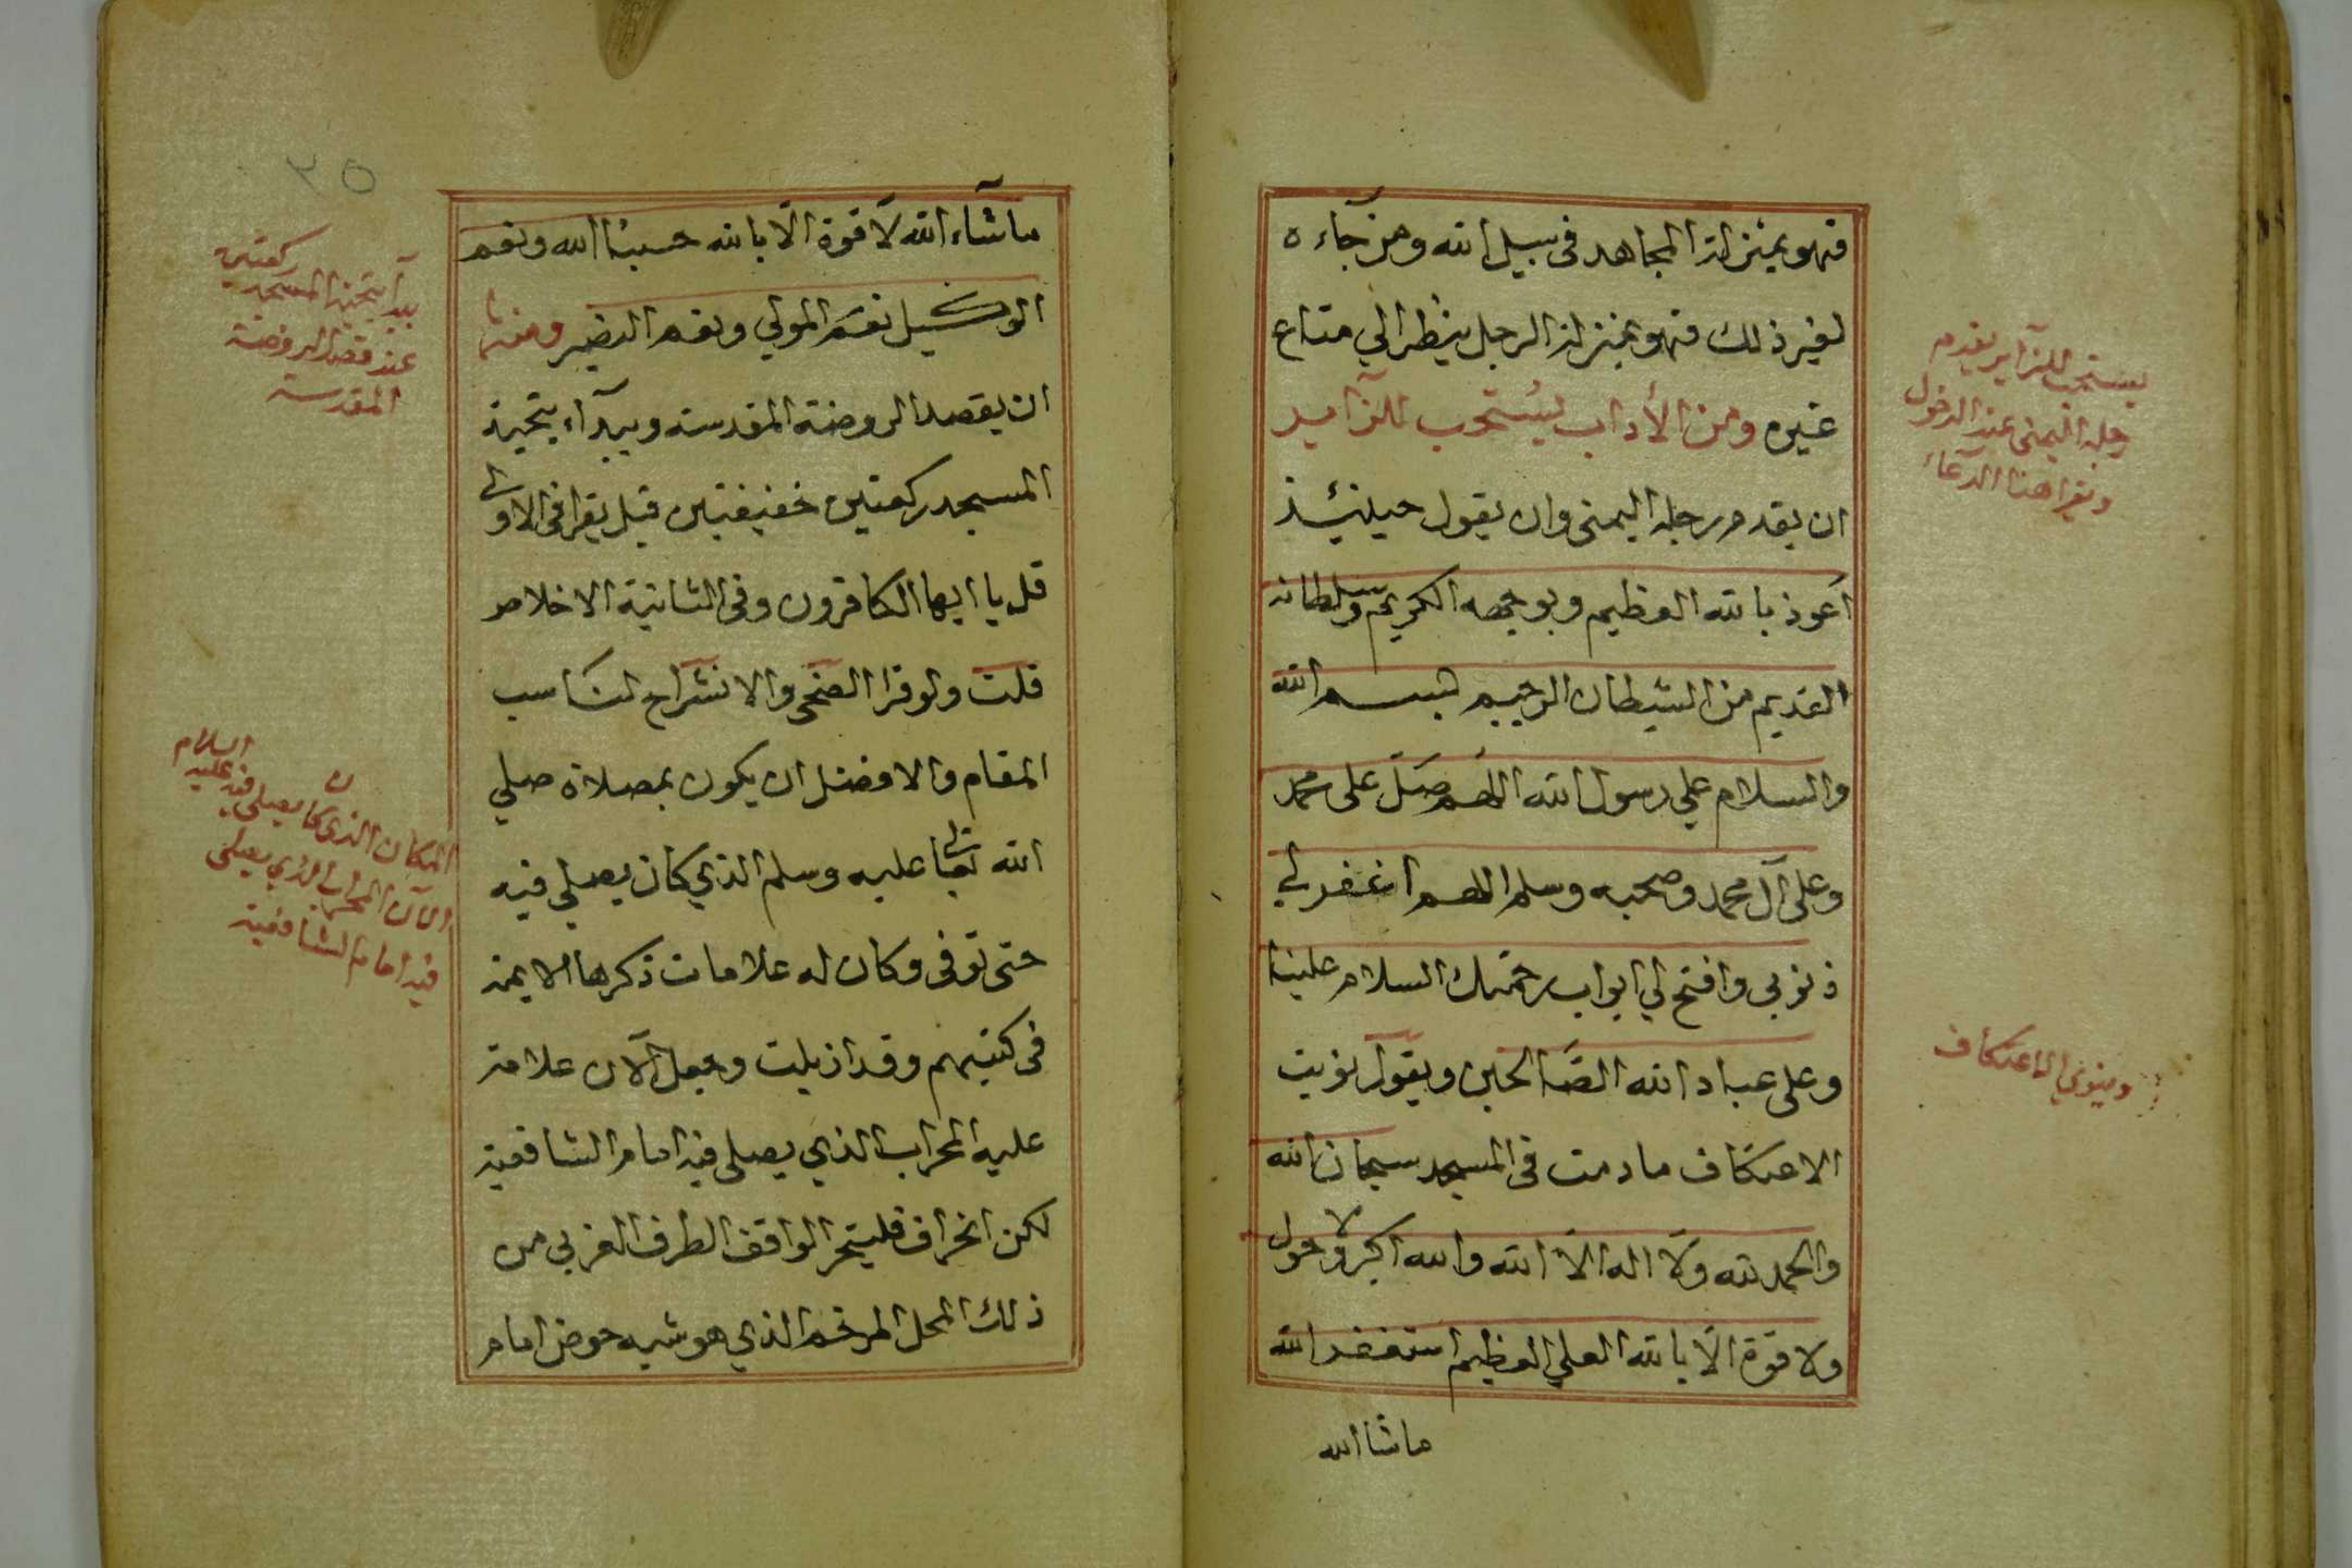 فهو بمنزلة المجاهد في سبيل الله ومن جآءه
لغير ذلك فهو بمنزلة الرجل ينظر الي متاع
غيره ومن الأداب يستحب للزآير
ان يقدم رجله اليمنى وان يقول حينئيذ
اعوذ بالله العظيم وبوجهه الكريم وسلطانه
القديم من الشيطان الرجيم بسم الله
والسلام علي رسول الله اللهم صل على محمد
وعلى آل محمد وصحبه وسلم اللهم اغفر لي
ذنوبي وافتح لي ابواب رحمتك السلام علينا
وعلى عباد الله الصالحين ويقول نويت
الاعتكاف ما دمت في المسجد سبحان الله
والحمد لله ولا اله الا الله والله اكبر ولا حول
ولا قوة الا بالله العلي العظيم استغفر الله
ماشا الله
يستحب للزآير يقدم
رجله اليمنى عند الدخول
ويقرا هذا الدعاء
وينوي الاعتكاف
٢٥
ماشآء الله لا قوة الا بالله حسبنا الله ونعم
الوكيل نعم المولي ونعم النصير ومنها
ان يقصد الروضة المقدسة ويبدآء بتحية
المسجد ركعتين خفيفتين قيل يقرا في الاولى
قل يا ايها الكافرون وفي الثانية الاخلاص
قلت ولو قرا الضحى والانشراح لناسب
المقام والافضل ان يكون بمصلاه صلي
الله تعالى عليه وسلم الذي كان يصلي فيه
حتى توفى وكان له علامات ذكرها الايمة
في كتبهم وقد ازيلت وجعل الآن علامة
عليه المحراب الذي يصلي فيه امام الشافعية
لكن انحراف فليتحر الواقف الطرف الغربي من
ذلك المحل المرخم الذي هو شبه حوض امام
يبدأ بتحية المسجد ركعتين
عند قصد الروضة
المقدسة
المكان الذي كان يصلي فيه عليه السلام
الآن المحراب الذي يصلي
فيه امام الشافعية